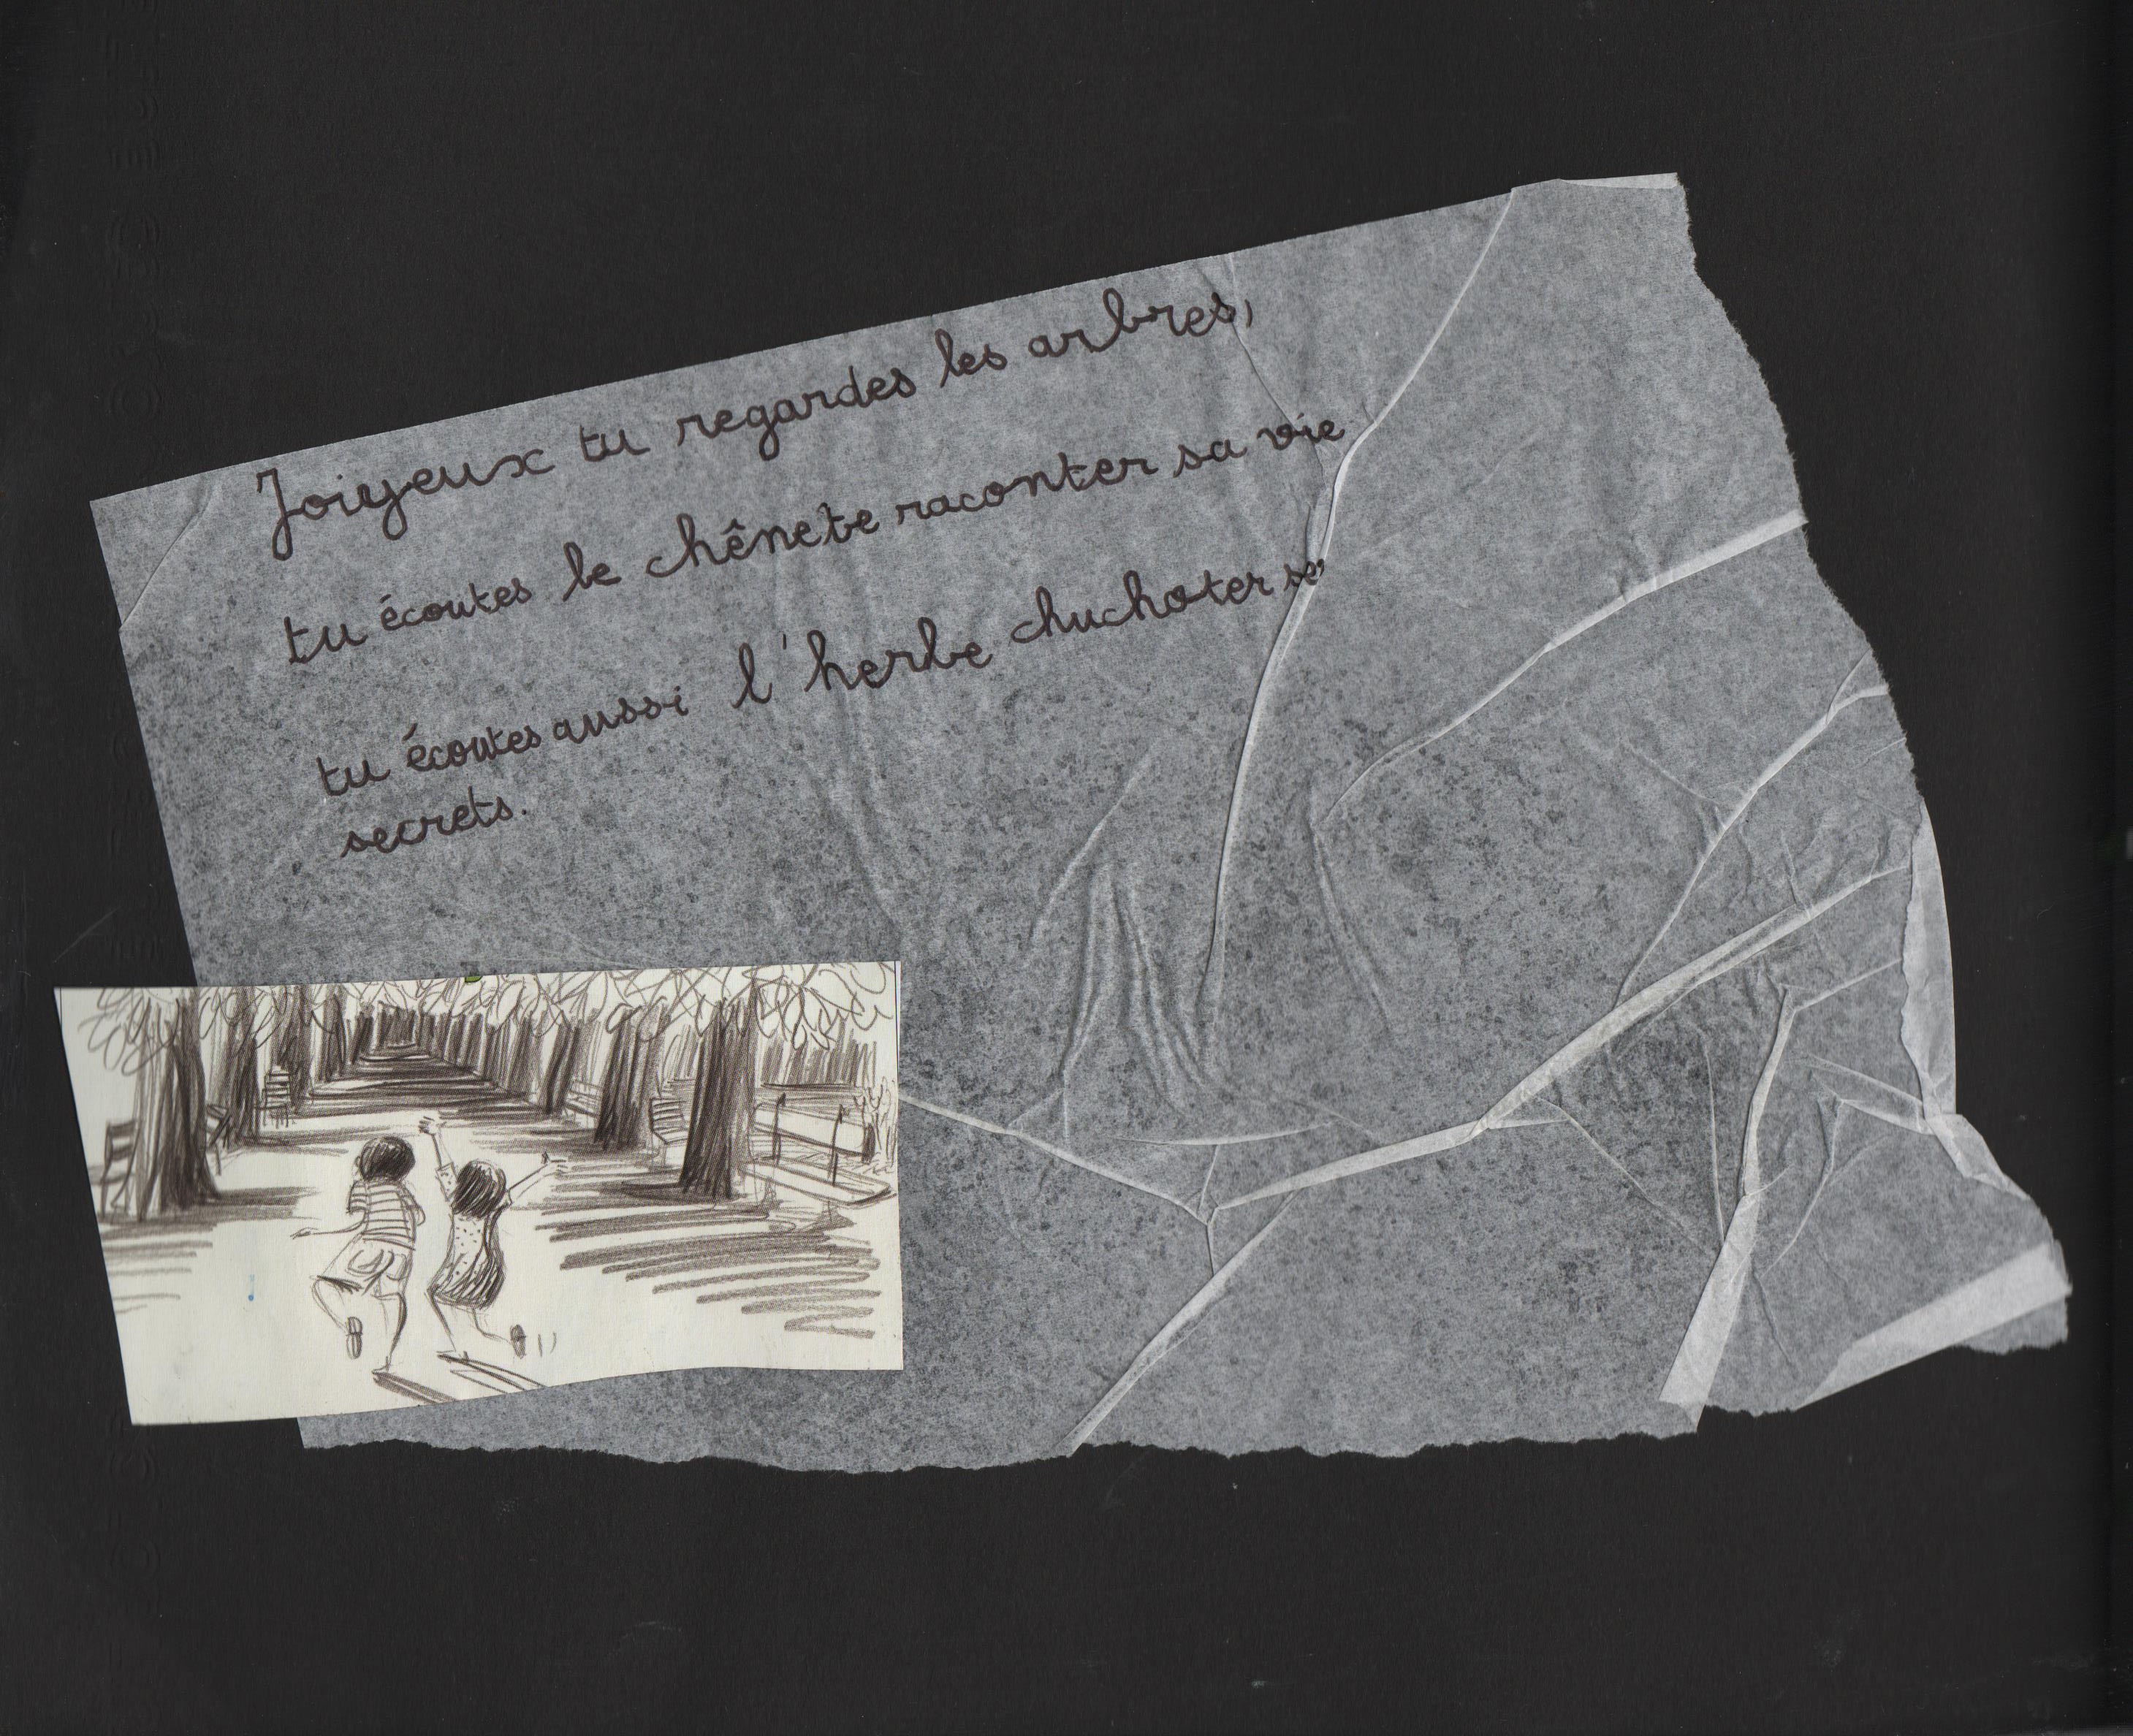 Joiyeux tu regardes les arbres,
tu écoutes le chênete raconter sa vie
tu écoutes aussi l'herbe chuchoter ses
secrets.